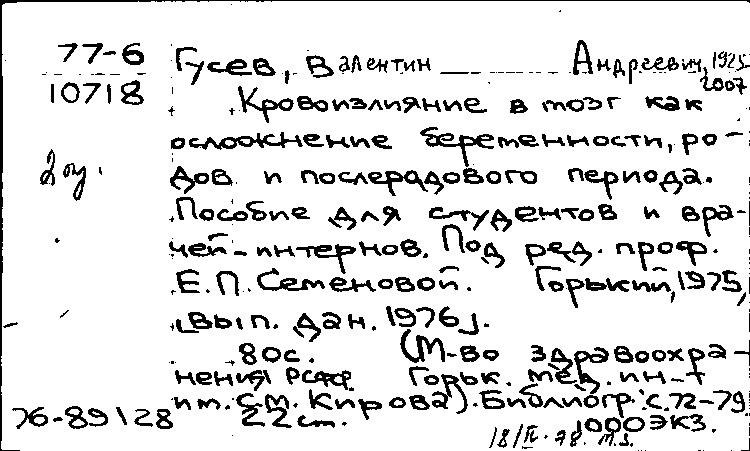 77-6 Гусев, Валентин Андреевич, 1925
2007
10718 Кровоизлияние в мозг как
осложнение беременности, ро-
дов и послеродового периода.
Пособие для студентов и вра-
чей-интернов. Под ред. проф.
Е.П. Семеновой. Горький, 1975,
[вып. дан. 1976].
80с. (М-во здравоохра-
нения РСФСР Горьк. мед. ин-т
им. С.М. Кирова). Библиогр.: с. 72-79
76-89128 22 см. 1000 экз.